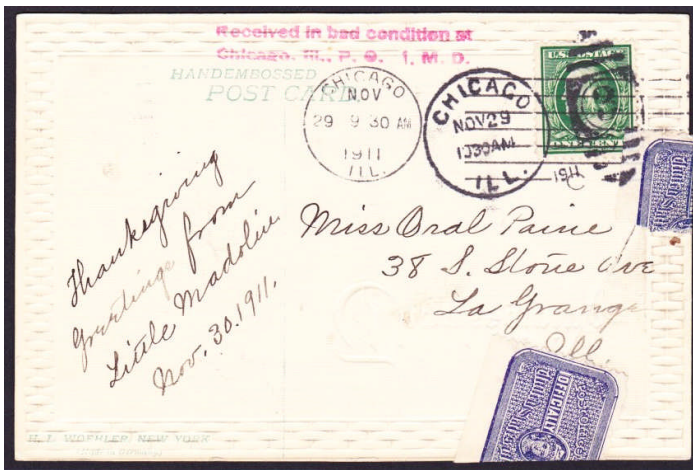 Received in bad condition at
Chicago, Ill., P. O. I. M. D.
HANDEMBOSSED
POST CARD
CHICAGO
NOV
29 9 30 AM
1911
ILL.
CHICAGO
NOV 29
1030AM
1911
ILL.
U.S. POSTAGE
Thanksgiving
Greetings from
Little Madoline
Nov. 30. 1911.
Miss Oral Paine
38 S. Stone Ave
La Grange
Ill.
OFFICIALLY
H. I. WOEHLER, NEW YORK